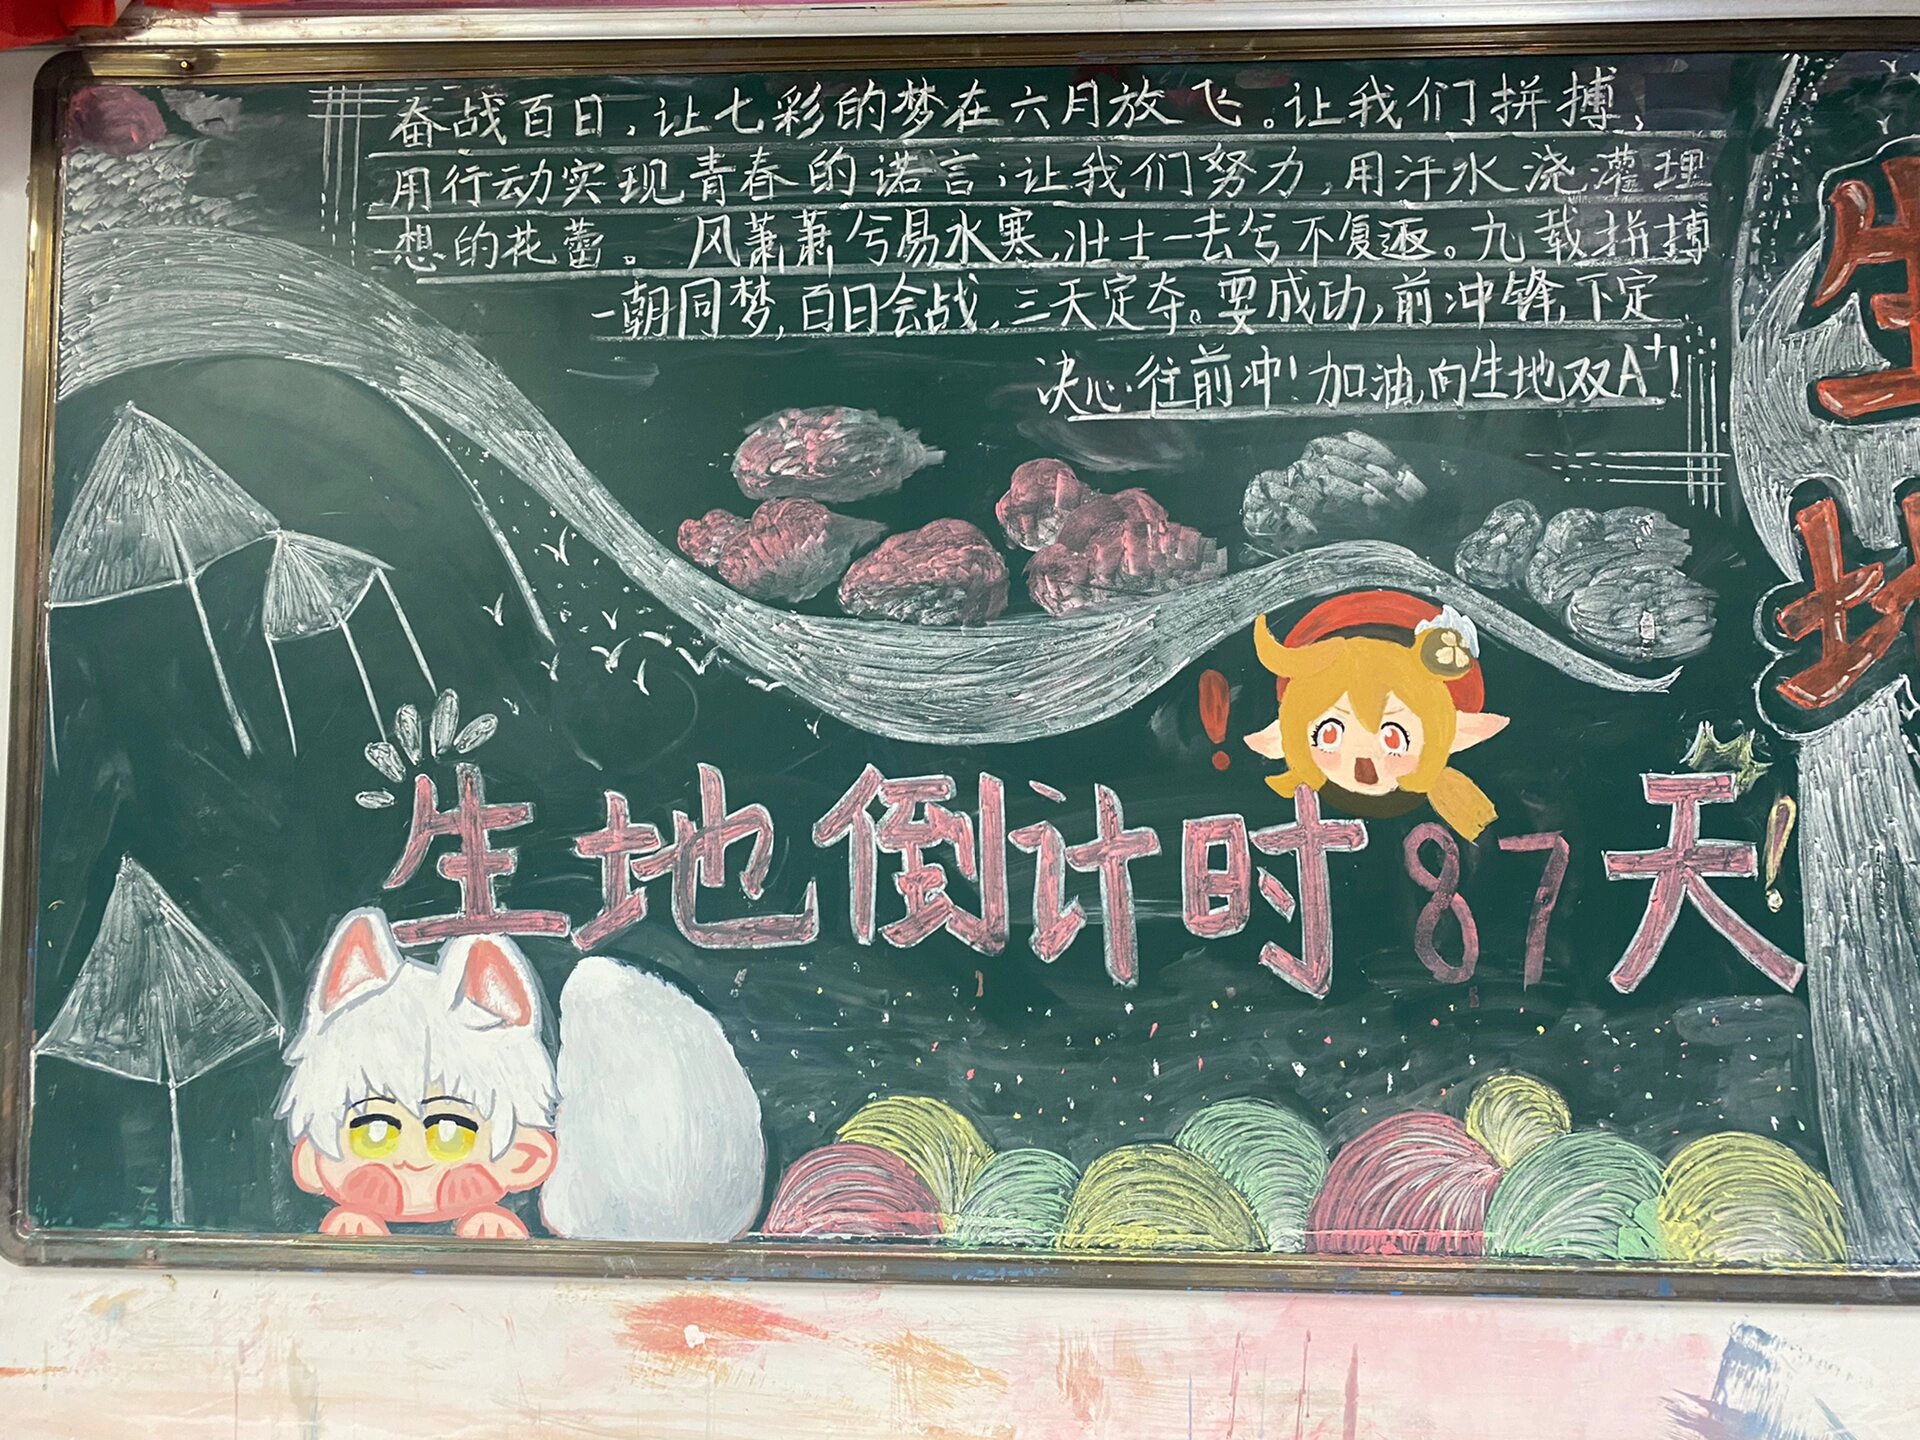 奋战百日，让七彩的梦在六月放飞。让我们拼搏，
用行动实现青春的诺言；让我们努力，用汗水浇灌理
想的花蕾。风萧萧兮易水寒，壮士一去兮不复返。九载拼搏
一朝同梦，百日会战，三天定夺。要成功，前冲锋，下定
决心·往前冲！加油，向生地双A⁺！
生
地
生地倒计时87天！